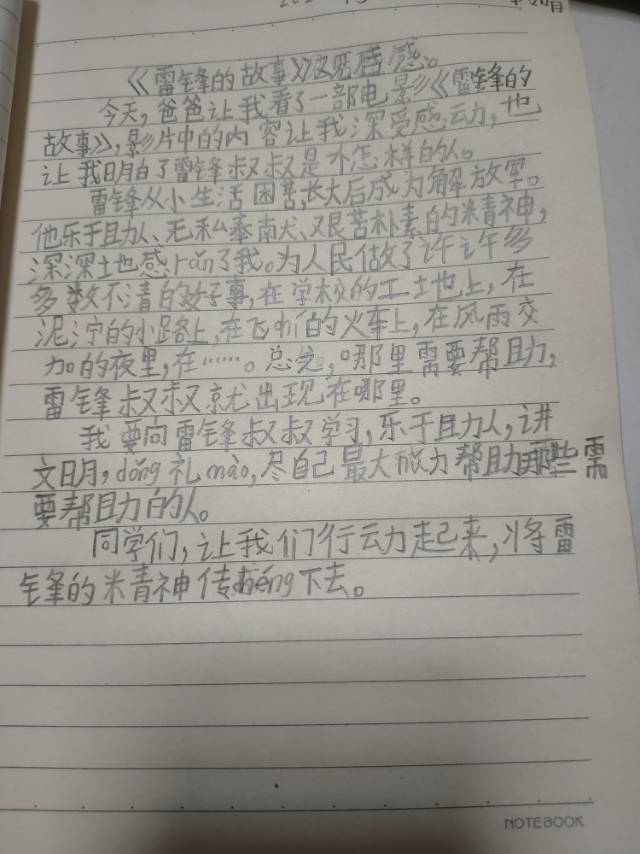 《雷锋的故事》观后感。
今天，爸爸让我看了一部电影《雷锋的
故事》，影片中的内容让我深受感动，也
让我明白了雷锋叔叔是个怎样的人。
雷锋从小生活困苦，长大后成为解放军。
他乐于助人、无私奉献、艰苦朴素的精神，
深深地感rǎn了我。为人民做了许许多
多数不清的好事，在学校的工地上，在
泥泞的小路上，在飞奔的火车上，在风雨交
加的夜里，在……。总之，哪里需要帮助，
雷锋叔叔就出现在哪里。
我要向雷锋叔叔学习，乐于助人，讲
文明，dǒng礼mào，尽自己最大能力帮助那些需
要帮助的人。
同学们，让我们行动起来，将雷
锋的精神传chéng下去。
NOTEBOOK